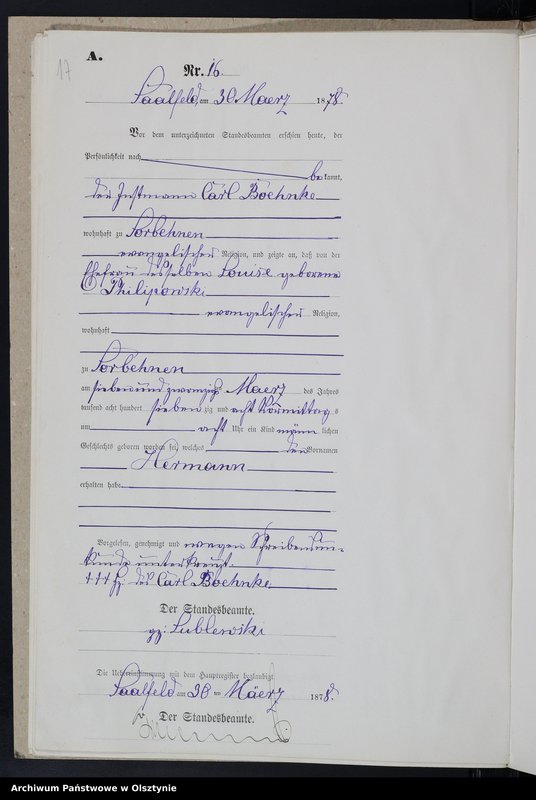 17
A.
Nr. 16
Saalfeld, am 30 Maerz 1878.
Vor dem unterzeichneten Standesbeamten erschien heute, der
Persönlichkeit nach
bekannt,
der Instmann Carl Boehnke
wohnhaft zu Sorbehnen
evangelischer Religion, und zeigte an, daß von der
Ehefrau desselben Louise geborene
Philipowski
evangelischer Religion,
wohnhaft
zu Sorbehnen
am sieben und zwanzigs Maerz des Jahres
tausend acht hundert siebenzig und acht Vormittags
um acht Uhr ein Kind männlichen
Geschlechts geboren worden sei, welches den Vornamen
Hermann
erhalten habe.
Vorgelesen, genehmigt und wegen Schreibensun-
kunde unterkreuzt.
+++ Hz. des Carl Boehnke
Der Standesbeamte.
gz: Lublewski
Die Uebereinstimmung mit dem Hauptregister beglaubigt.
Saalfeld am 30 ten Maerz 1878.
Der Standesbeamte.
Archiwum Państwowe w Olsztynie